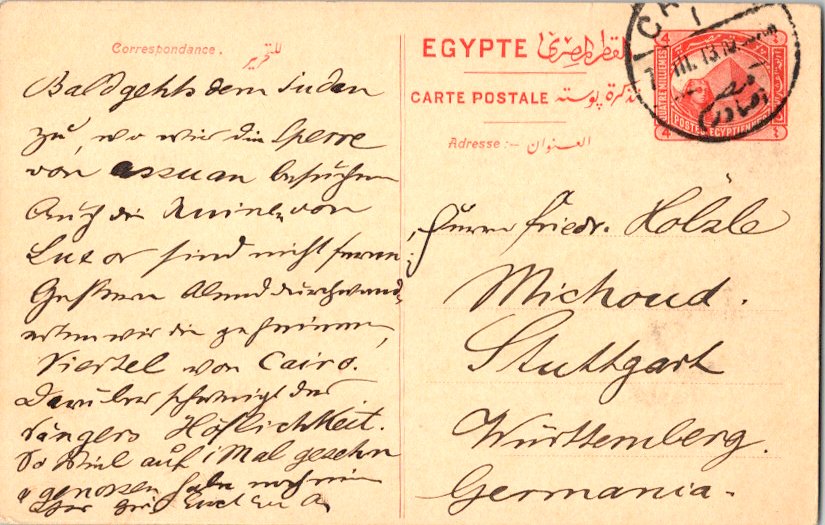 Correspondance.
Bald gehts dem Sudan
zu, wo wir die Sperre
von Assuan besuchen
Auch die Ruinen von
Luxor sind nicht ferne
Gestern Abend durchwand-
erten wir die geheimen
Viertel von Cairo.
Darüber schweigt des
Sängers Höflichkeit.
So viel auf 1 Mal gesehn
u genossen habe noch nie
EGYPTE القطر المصرى
CARTE POSTALE تذكرة بوسته
Adresse:- العنوان
CA
1
III. 13
QUATRE MILLIEMES
POSTES EGYPTIENNES
4 4
Herrn Friedr. Hölzle
Michoud.
Stuttgart
Württemberg.
Germania.